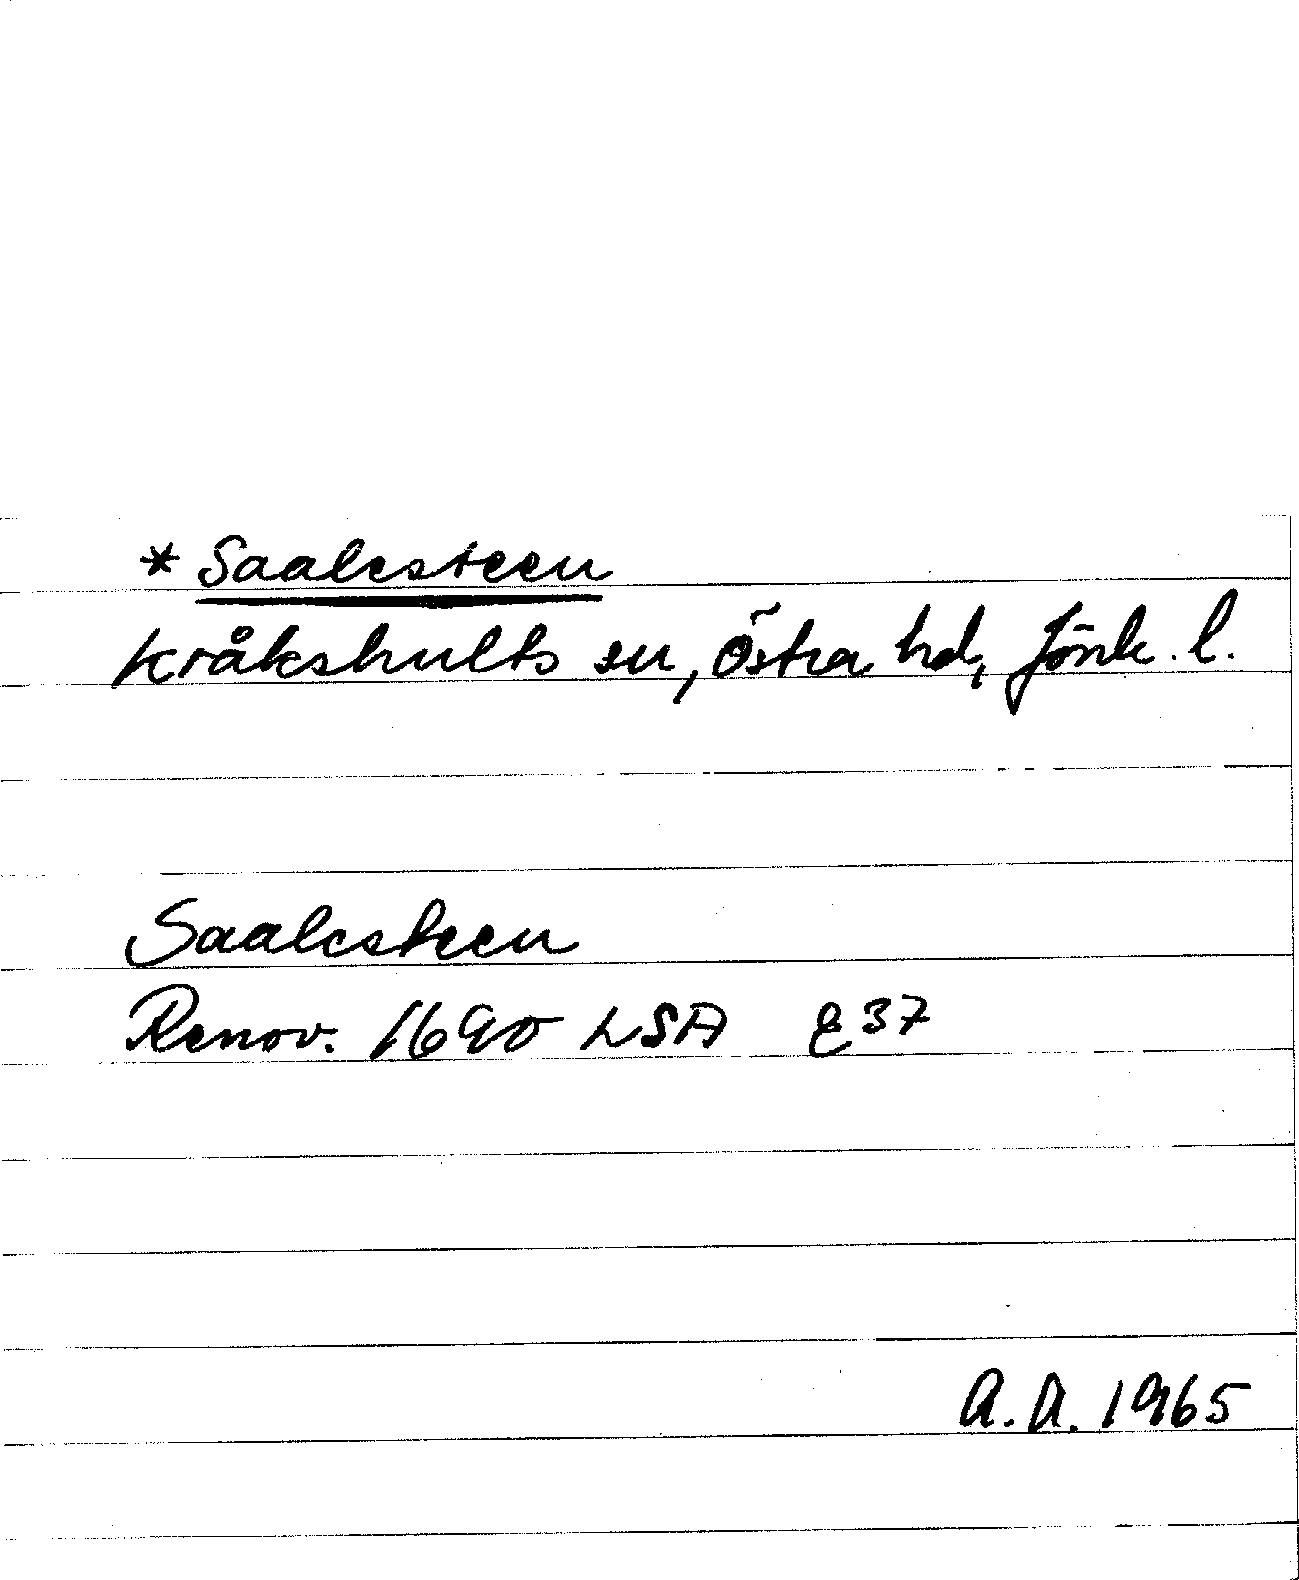 * Saalesteen
Kråkshults sn, Östra hd, Jönk. l.
Saalesteen
Renov. 1690 LSA E37
A.A. 1965